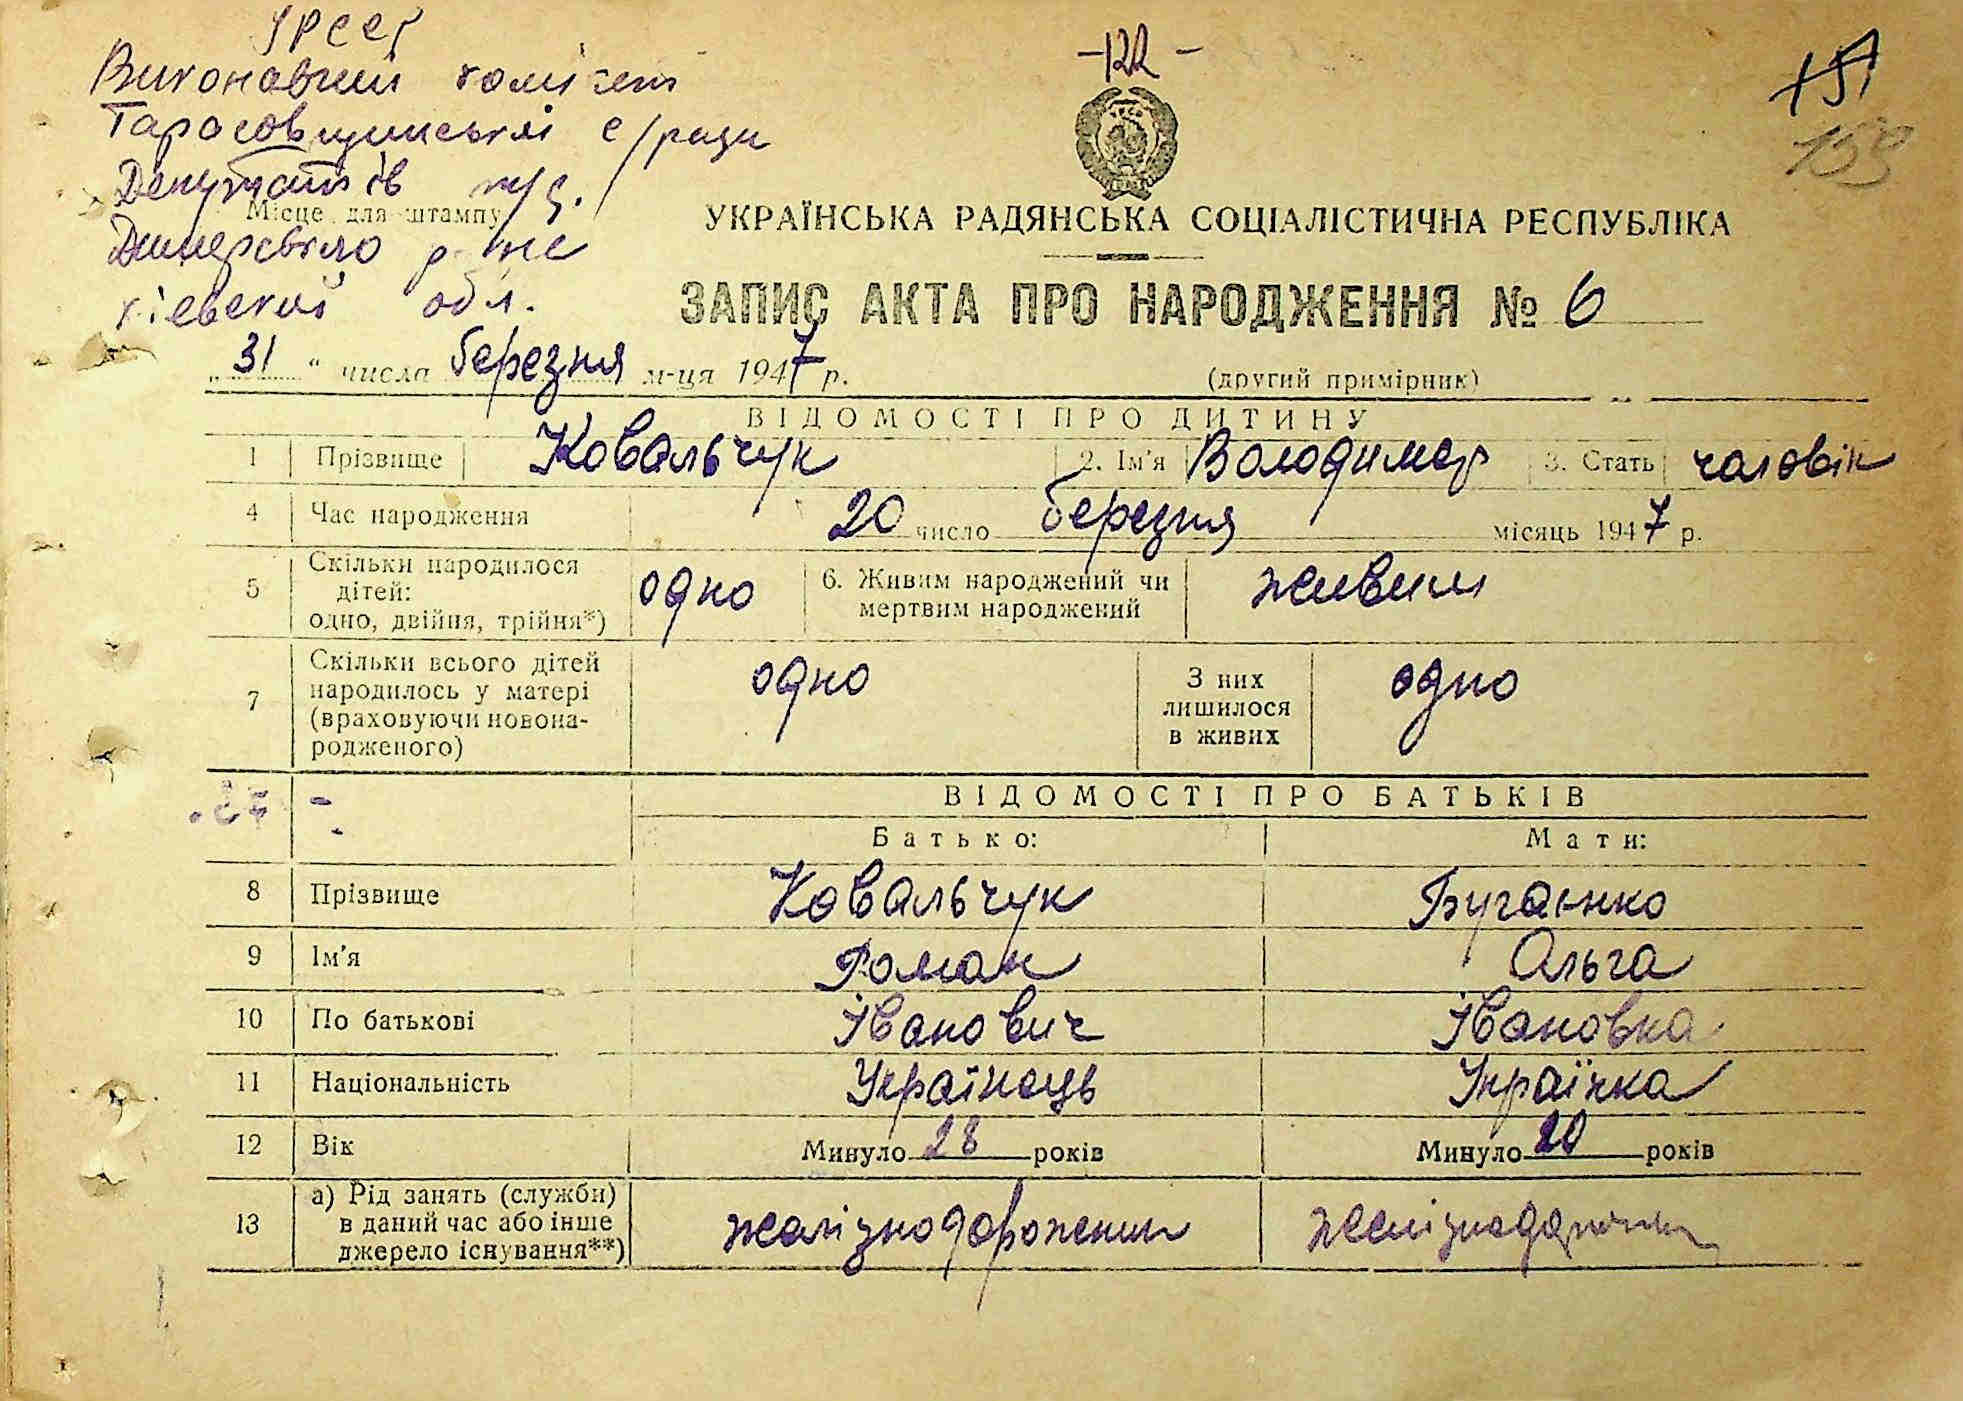 УРСР
Виконавчий комітет
Тарасовщинської с/ради
Депутатів тр.
Місце для штампу
Димерського р-не
Київської обл.
-122-
151
159
УКРАЇНСЬКА РАДЯНСЬКА СОЦІАЛІСТИЧНА РЕСПУБЛІКА
ЗАПИС АКТА ПРО НАРОДЖЕННЯ № 6
„31“ числа березня м-ця 1947 р. (другий примірник)
ВІДОМОСТІ ПРО ДИТИНУ
1 Прізвище Ковальчук 2. Ім'я Володимер 3. Стать чоловік
4 Час народження 20 число березня місяць 1947 р.
5 Скільки народилося дітей: одно, двійня, трійня*) одно 6. Живим народжений чи мертвим народжений живим
7 Скільки всього дітей народилось у матері (враховуючи новонародженого) одно З них лишилося в живих одно
ВІДОМОСТІ ПРО БАТЬКІВ
Батько: Мати:
8 Прізвище Ковальчук Бугаєнко
9 Ім'я Роман Ольга
10 По батькові Іванович Івановна
11 Національність Українець Українка
12 Вік Минуло 28 років Минуло 20 років
13 а) Рід занять (служби) в даний час або інше джерело існування**) желізнодорожник